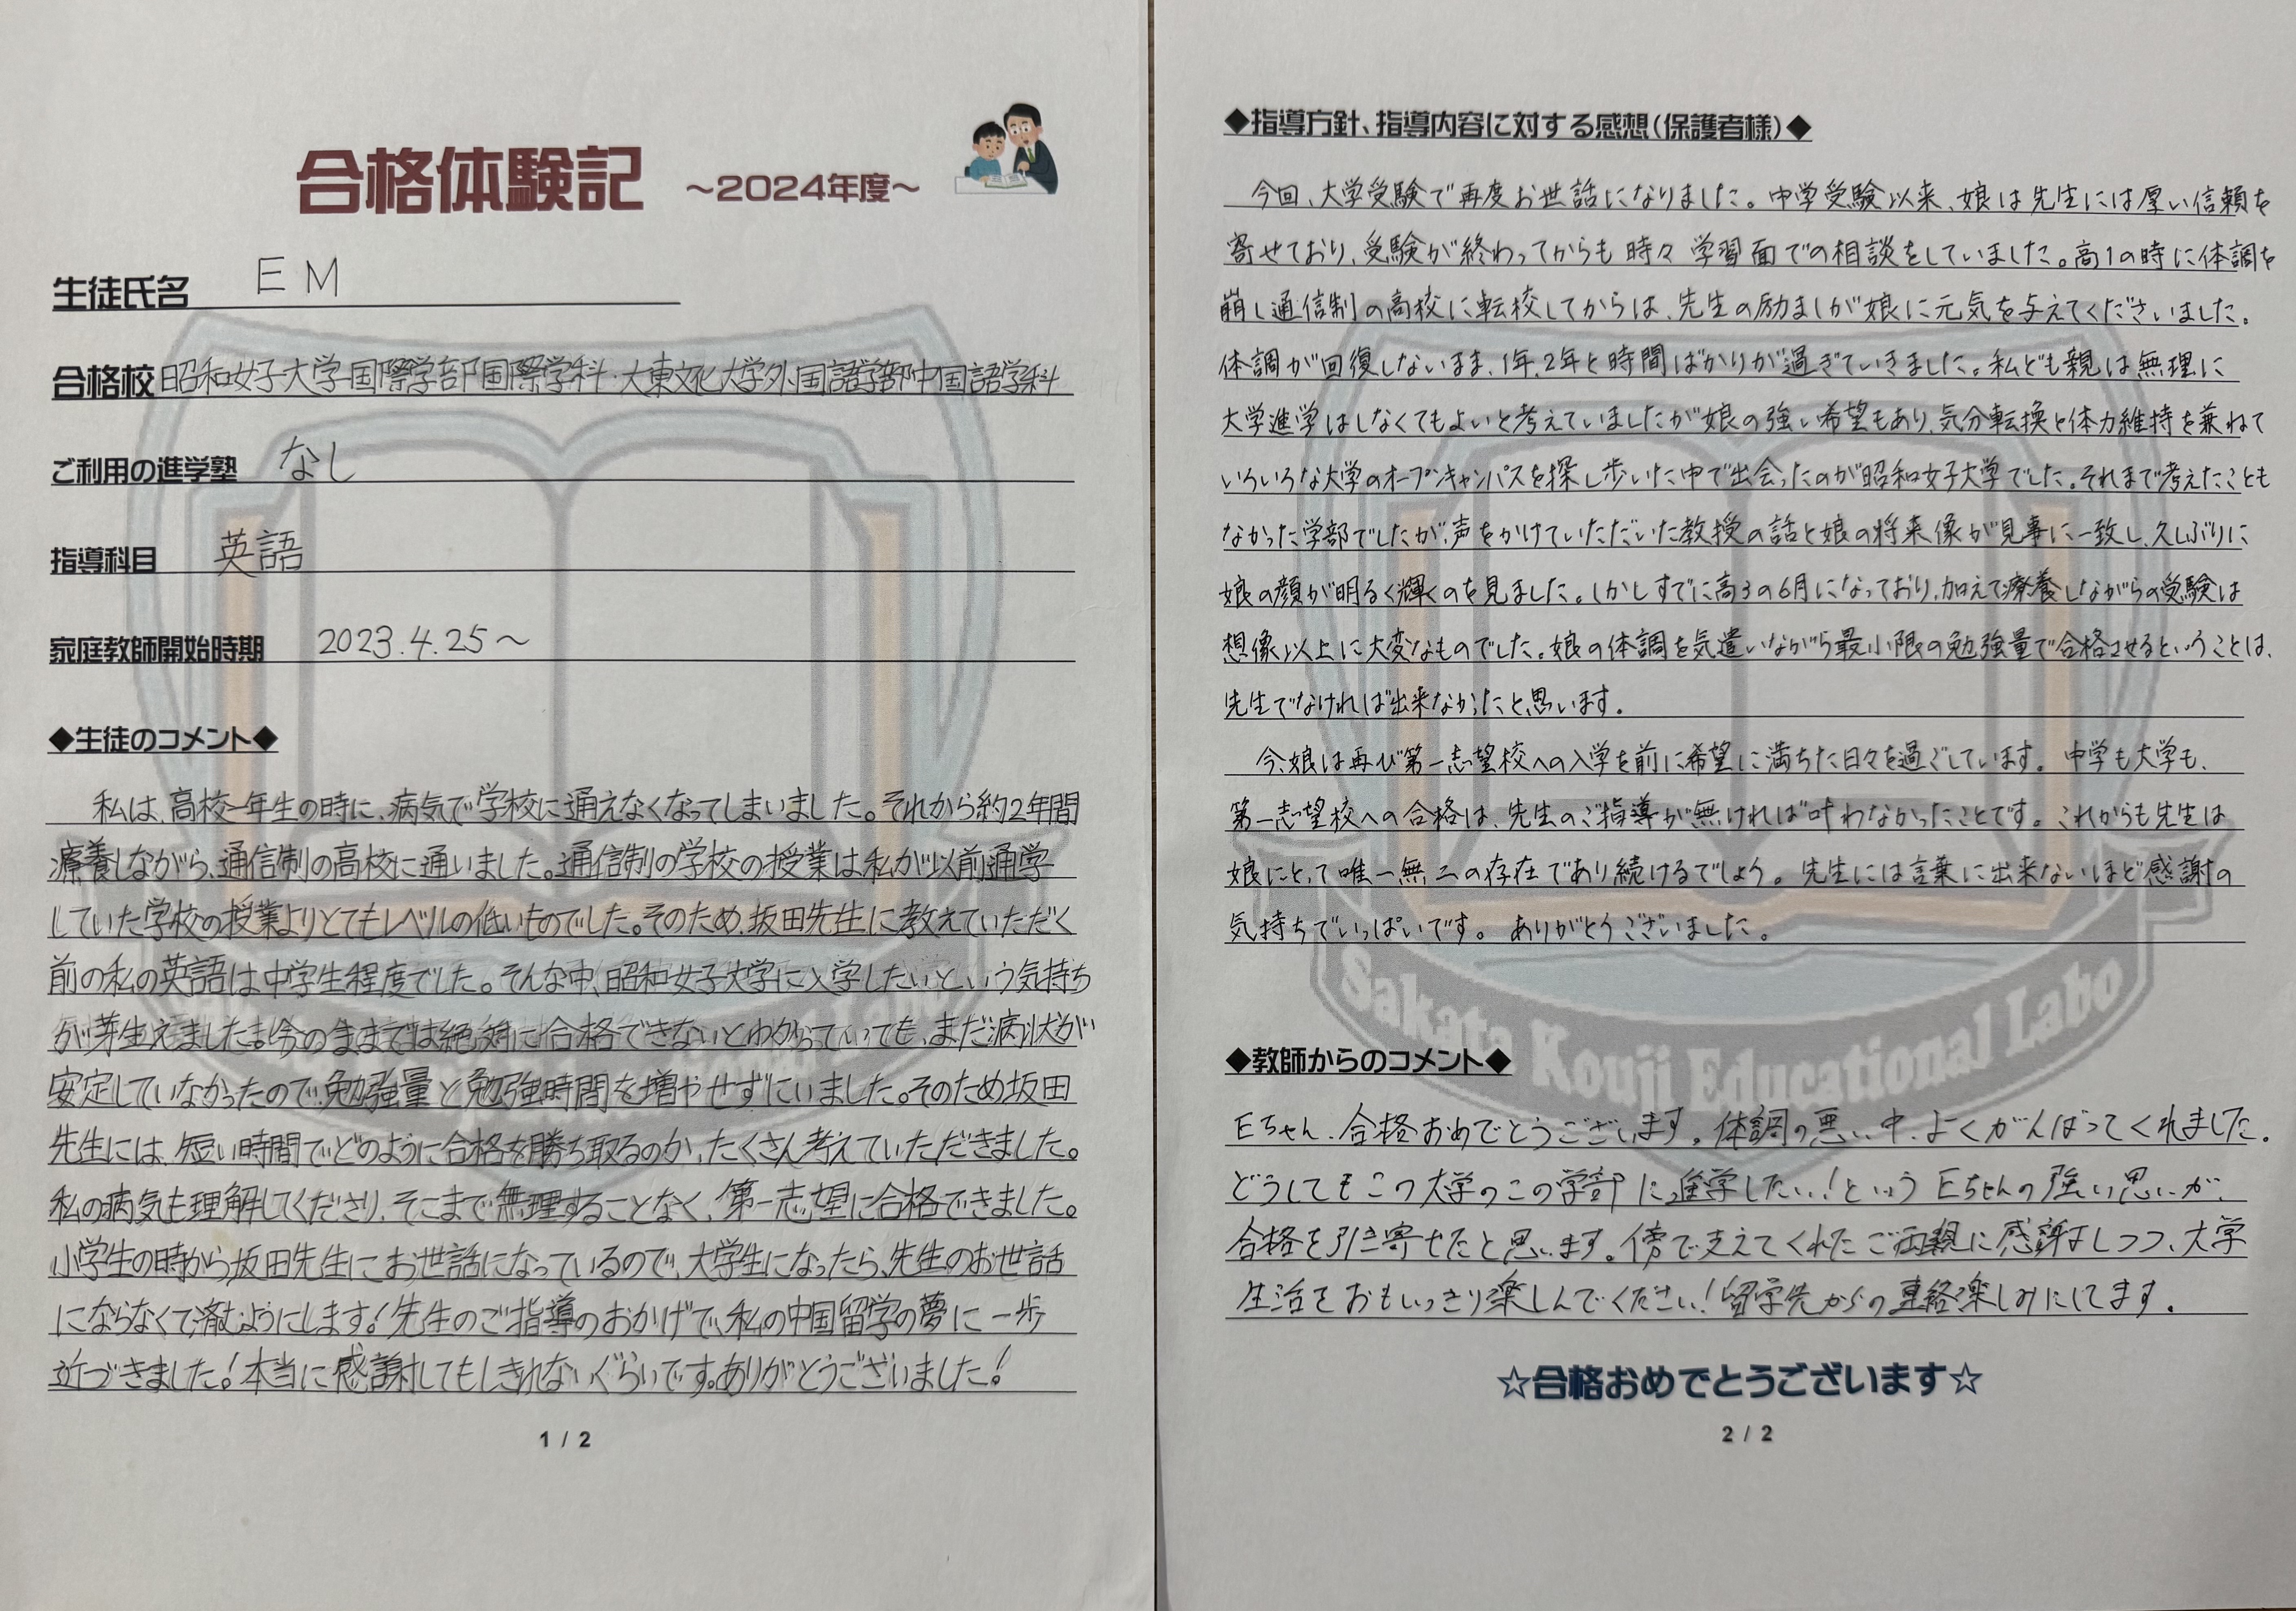 合格体験記 ～2024年度～
生徒氏名 EM
合格校 昭和女子大学国際学部国際学科・大東文化大学外国語学部中国語学科
ご利用の進学塾 なし
指導科目 英語
家庭教師開始時期 2023.4.25～
◆生徒のコメント◆
私は、高校一年生の時に、病気で学校に通えなくなってしまいました。それから約2年間
療養しながら、通信制の高校に通いました。通信制の学校の授業は私が以前通学
していた学校の授業よりとてもレベルの低いものでした。そのため、坂田先生に教えていただく
前の私の英語は中学生程度でした。そんな中、昭和女子大学に入学したいという気持ち
が芽生えました。今のままでは絶対に合格できないとわかっていても、まだ病状が
安定していなかったので、勉強量と勉強時間を増やせずにいました。そのため坂田
先生には、短い時間でどのように合格を勝ち取るのか、たくさん考えていただきました。
私の病気も理解してくださり、そこまで無理することなく、第一志望に合格できました。
小学生の時から坂田先生にお世話になっているので、大学生になったら、先生のお世話
にならなくて済むようにします！先生のご指導のおかげで、私の中国留学の夢に一歩
近づきました！本当に感謝してもしきれないぐらいです。ありがとうございました！
1 / 2
◆指導方針、指導内容に対する感想（保護者様）◆
今回、大学受験で再度お世話になりました。中学受験以来、娘は先生には厚い信頼を
寄せており、受験が終わってからも時々学習面での相談をしていました。高1の時に体調を
崩し通信制の高校に転校してからは、先生の励ましが娘に元気を与えてくださいました。
体調が回復しないまま、1年、2年と時間ばかりが過ぎていきました。私ども親は無理に
大学進学はしなくてもよいと考えていましたが娘の強い希望もあり、気分転換と体力維持を兼ねて
いろいろな大学のオープンキャンパスを探し歩いた中で出会ったのが昭和女子大学でした。それまで考えたことも
なかった学部でしたが、声をかけていただいた教授の話と娘の将来像が見事に一致し、久しぶりに
娘の顔が明るく輝くのを見ました。しかしすでに高3の6月になっており、加えて療養しながらの受験は
想像以上に大変なものでした。娘の体調を気遣いながら最小限の勉強量で合格させるということは、
先生でなければ出来なかったと思います。
今、娘は再び第一志望校への入学を前に希望に満ちた日々を過ごしています。中学も大学も、
第一志望校への合格は、先生のご指導が無ければ叶わなかったことです。これからも先生は
娘にとって唯一無二の存在であり続けるでしょう。先生には言葉に出来ないほど感謝の
気持ちでいっぱいです。ありがとうございました。
◆教師からのコメント◆
Eちゃん、合格おめでとうございます。体調の悪い中、よくがんばってくれました。
どうしてもこの大学のこの学部に進学したい！というEちゃんの強い思いが、
合格を引き寄せたと思います。傍で支えてくれたご両親に感謝しつつ、大学
生活をおもいっきり楽しんでください！留学先からの連絡楽しみにしてます。
☆合格おめでとうございます☆
2 / 2
Sakata Kouji Educational Labo